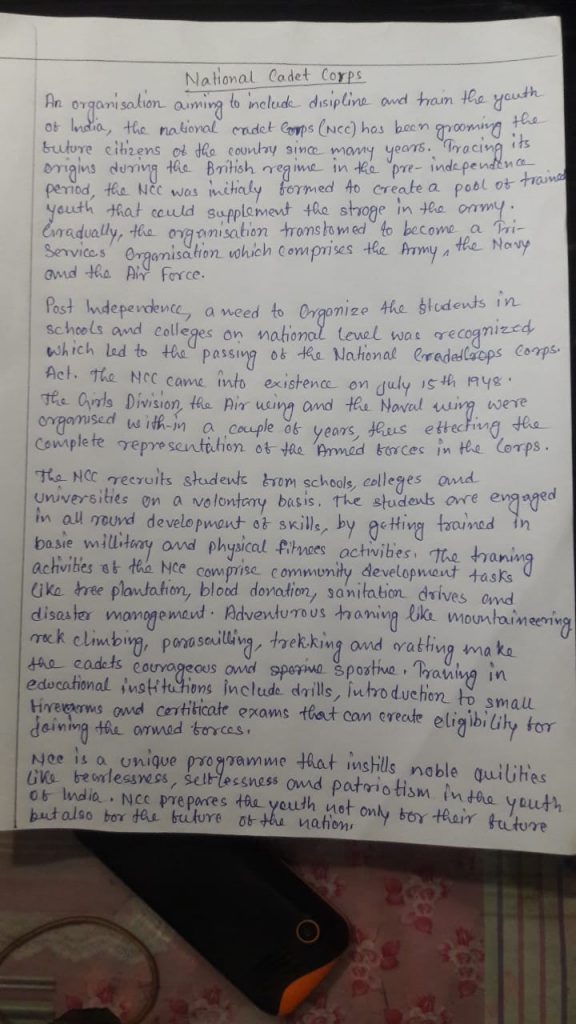 National Cadet Corps
An organisation aiming to include disipline and train the youth
of India, the national cadet Corps (NCC) has been grooming the
future citizens of the country since many years. Tracing its
origins during the British regime in the pre-independence
period, the NCC was initialy formed to create a pool of trained
youth that could supplement the stroge in the army.
Gradually, the organisation transfomed to become a Tri-
Services Organisation which comprises the Army, the Navy
and the Air Force.
Post Independence, a need to Organize the Students in
schools and colleges on national level was recognized
which led to the passing of the National Corps.
Act. The NCC came into existence on July 15th 1948.
The Girls Division, the Air wing and the Naval wing were
organised with-in a couple of years, thus effecting the
complete representation of the Armed forces in the Corps.
The NCC recruits students from schools, colleges and
universities on a volontary basis. The students are engaged
in all round development of skills, by getting trained in
basic millitary and physical fitness activities. The traning
activities of the NCC comprise community development tasks
like tree plantation, blood donation, sanitation drives and
disaster management. Adventurous traning like mountaineering
rock climbing, parasailling, trekking and rafting make
the cadets courageous and sportive. Traning in
educational institutions include drills, introduction to small
firearms and certificate exams that can create eligibility for
joining the armed forces.
NCC is a unique programme that instills noble quilities
like fearlessness, selflessness and patriotism in the youth
of India. NCC prepares the youth not only for their future
but also for the future of the nation.